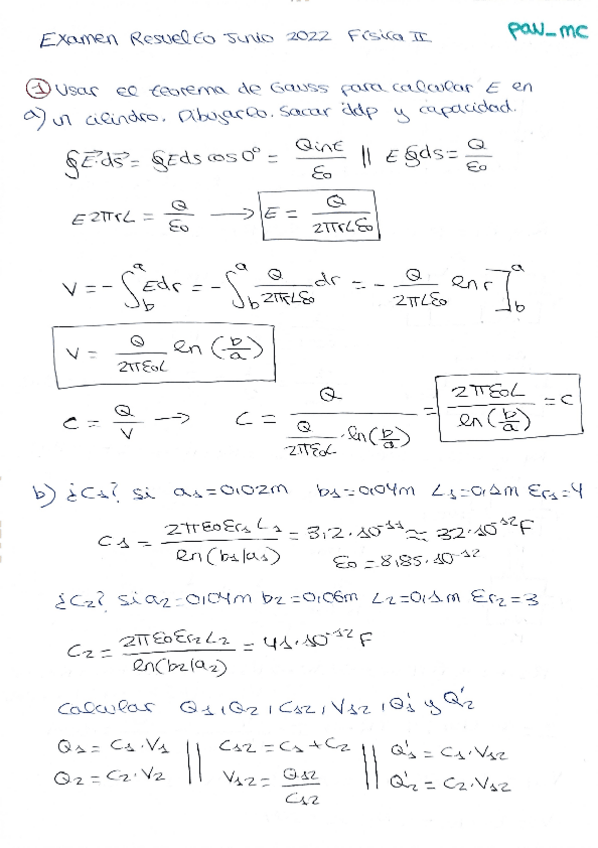 Examen Resuelto Junio 2022 Física II
pau_mc
① Usar el teorema de Gauss para calcular E en
a) un cilindro. Dibujarlo. Sacar ddp y capacidad.
∮E⃗·ds⃗ = ∮Eds cos0° = Qint/ε0 || E∮ds = Q/ε0
E2πrL = Q/ε0 → E = Q/2πrLε0
V = -∫_b^a Edr = -∫_b^a Q/2πrLε0 dr = - Q/2πLε0 ln r]_b^a
V = Q/2πε0L ln(b/a)
C = Q/V → C = Q/(Q/2πε0L · ln(b/a)) = 2πε0L/ln(b/a) = C
b) ¿C1? si a1=0,02m b1=0,04m L1=0,1m εr1=4
C1 = 2πε0εr1L1/ln(b1/a1) = 3,2·10^-11 ≈ 32·10^-12 F
ε0 = 8,85·10^-12
¿C2? si a2=0,04m b2=0,06m L2=0,1m εr2=3
C2 = 2πε0εr2L2/ln(b2/a2) = 41·10^-12 F
Calcular Q1, Q2, C12, V12, Q1' y Q2'
Q1 = C1·V1 || C12 = C1+C2 || Q1' = C1·V12
Q2 = C2·V2 || V12 = Q12/C12 || Q2' = C2·V12